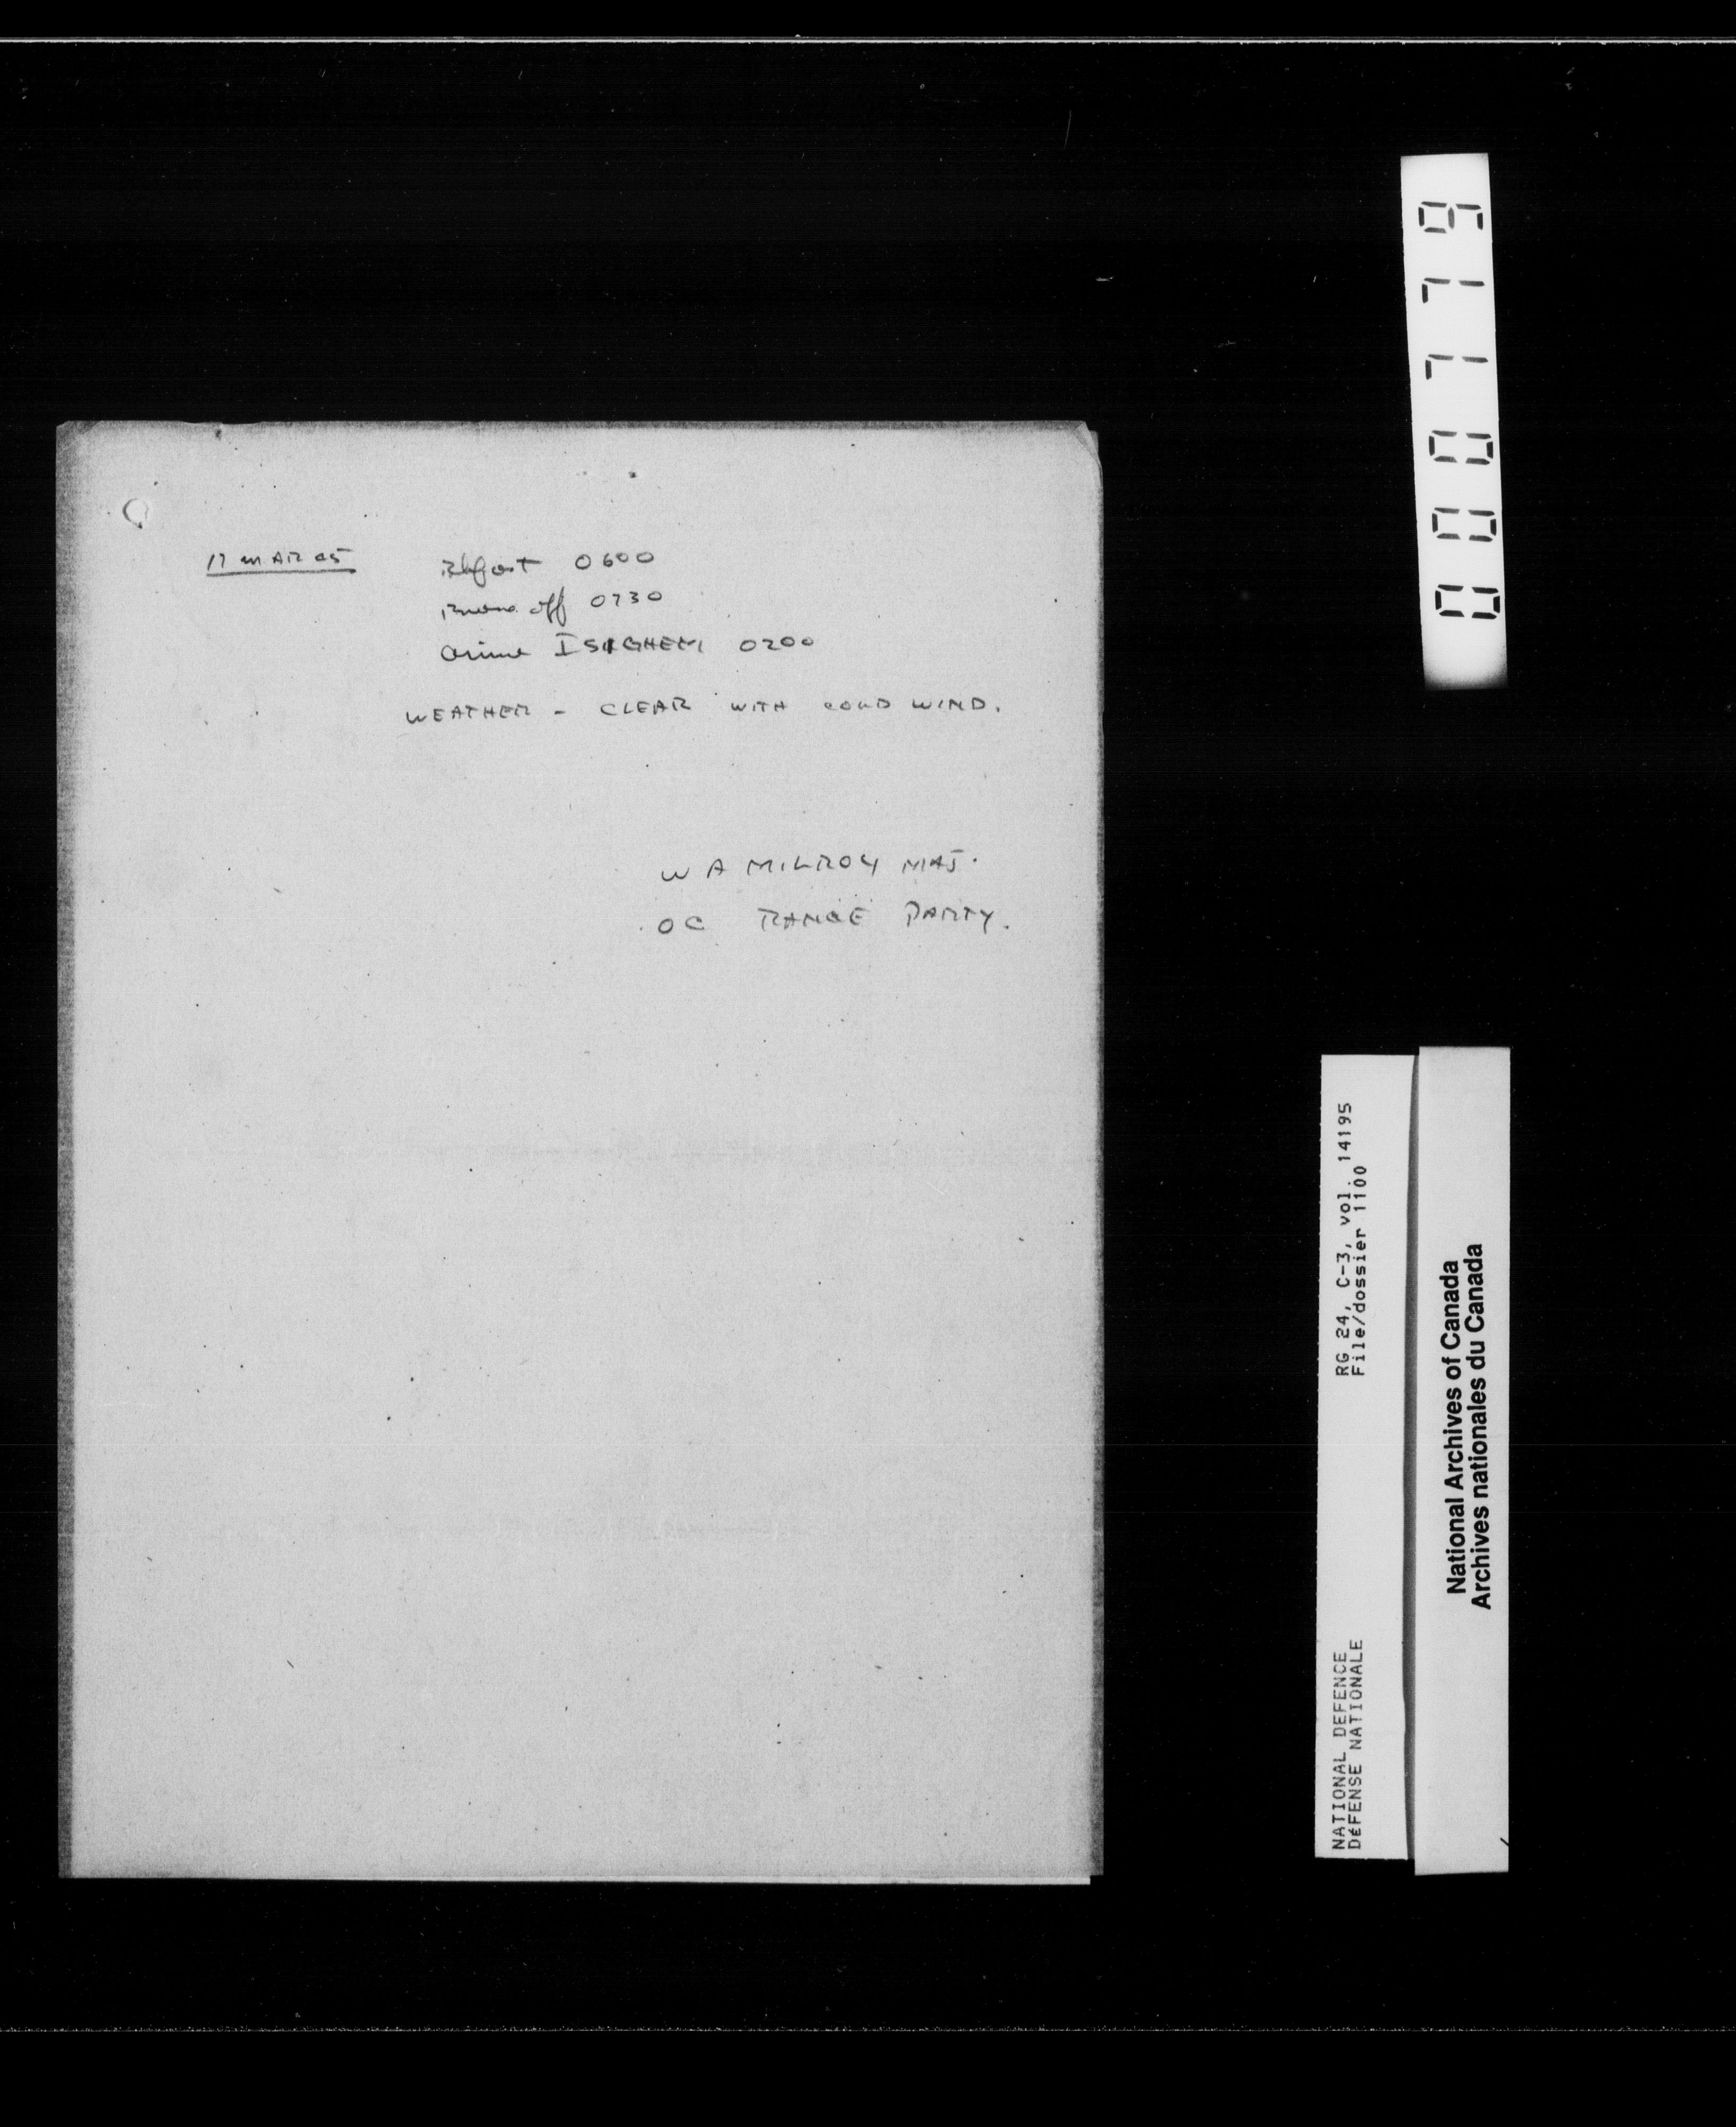 17 MAR 45
Bkfast 0600
Move off 0730
Arrive ISEGHEM 0200
WEATHER - CLEAR WITH COLD WIND.
W A MILROY MAJ.
OC RANGE PARTY.
000779
RG 24, C-3, vol. 14195
File/dossier 1100
NATIONAL DEFENCE
DÉFENSE NATIONALE
National Archives of Canada
Archives nationales du Canada